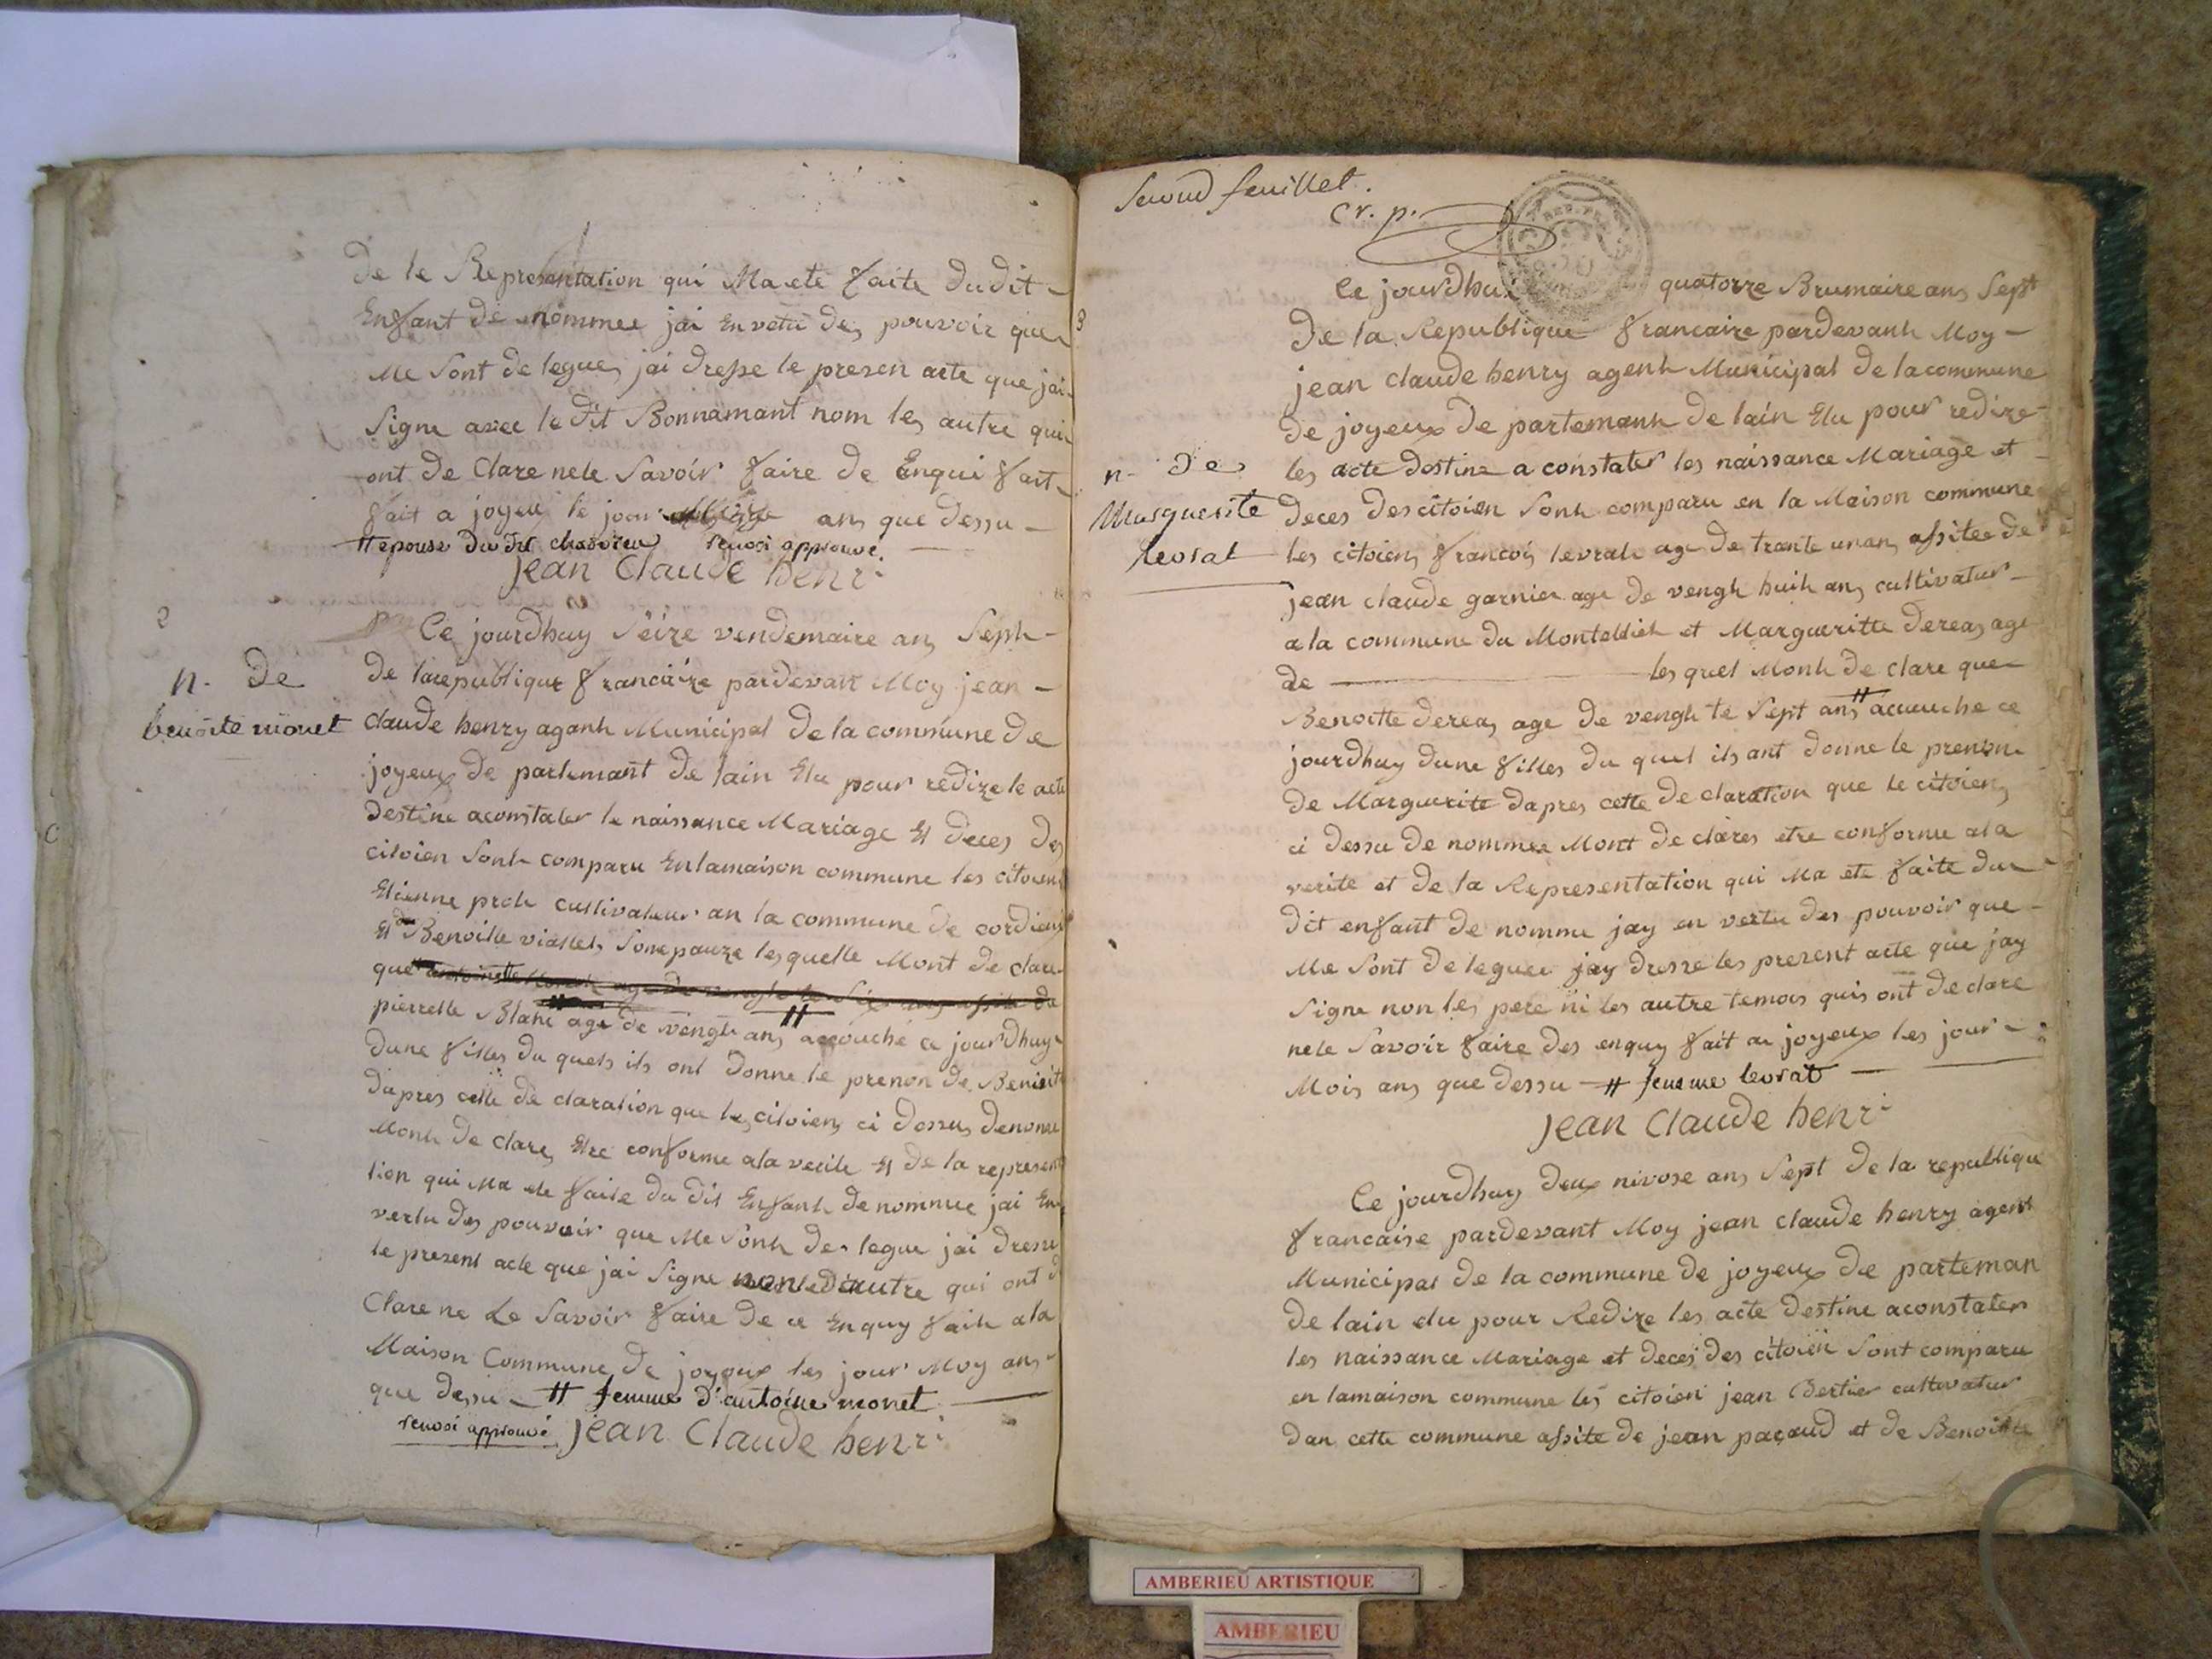 de le Representation qui Ma ete faite dudit
Enfant de nommee jai En vetu des pouvoir que
Me Sont de legues jai dresse le presen acte que jai
Signe avec le dit Bonnamant nom les autre qui
ont de Clare nele Savoir faire de Enqui fait
fait a joyeu le jour ans que dessu
# epouse du dit renvoi approuvé
jean Claude henri
2
n. de
benoite monet
Ce jourdhuy Seize vendemaire ans Seph
de larepublique francaize pardevant Moy jean
claude henry aganh Municipal de la commune de
joyeux de partemant de lain Elu pour redize le acte
destine aconstater le naissance Mariage Et deces des
citoien Sonh comparu Enlamaison commune les citoiens
Etienne proh cultivateur an la commune de cordieux
Et de Benoitte viallet, Sone pauze lesquelle Mont de clare
que
pierrette Blanc age de vengh ans # accouché ce jourdhuy
dune filles du quels ils ont donne le prenon de Benoite
dapres cette de claration que les citoiens ci dessus denome
Monh de clare, Etre conforme ala verite Et de la represen
tion qui Ma ete faite du dit Enfanh de nommee jai En
vertu des pouvoir que Me Sonh de legue jai dresse
le present acte que jai Signe non autre qui ont d
Clare ne Le Savoir faire de ce Enquy faih ala
Maison Commune de joyoux les jour Moy ans
que dessu # femme d'antoine monet
renvoi approuvé jean Claude henri
Second feuillet.
cr. p.
3
n. de
Marguerite
levrat
Ce jourdhui quatorze Brumaire ans Sept
de la Republique francaize pardevanh Moy
jean claude henry agenh Municipal de lacommune
de joyeux de partemanh de lain Elu pour redize
les acte destine a constater les naissance Mariage et
deces des citoien Sonh comparu en la Maison commune
les citoiens francois levrah age de trante unans assitee de
jean claude garnier age de vengh huih ans cultivatur
a la commune du Montellieh et Margueritte dereas age
de les quel Monh de clare que
Benoitte dereas age de vengh te Sept ans # acuuche ce
jourdhuy dune filles du quel ils ant donne le prenon
de Marguerite dapres cette de claration que le citoiens
ci dessu de nommee Mont de clares etre conforme ala
verite et de la Representation qui Ma ete faite du
dit enfant de nomme jay en vertu des pouvoir que
Me Sont de leguee jay dresse les present acte que jay
Signe non les pere ni les autre temois quis ont de clare
nele Savoir faire des enquy fait a joyeux les jour
Mois ans que dessu # femme levrat
jean Claude henri
Ce jourdhuy deux nivose ans Sept de la republique
francaise pardevant Moy jean claude henry agent
Municipal de la commune de joyeux de parteman
de lain elu pour Redize les acte destine aconstater
les naissance Mariage et deces des citoien Sont comparu
en lamaison commune les citoien jean Bertier cultivatur
dan cette commune assite de jean paçaud et de Benoitte
AMBERIEU ARTISTIQUE
AMBERIEU